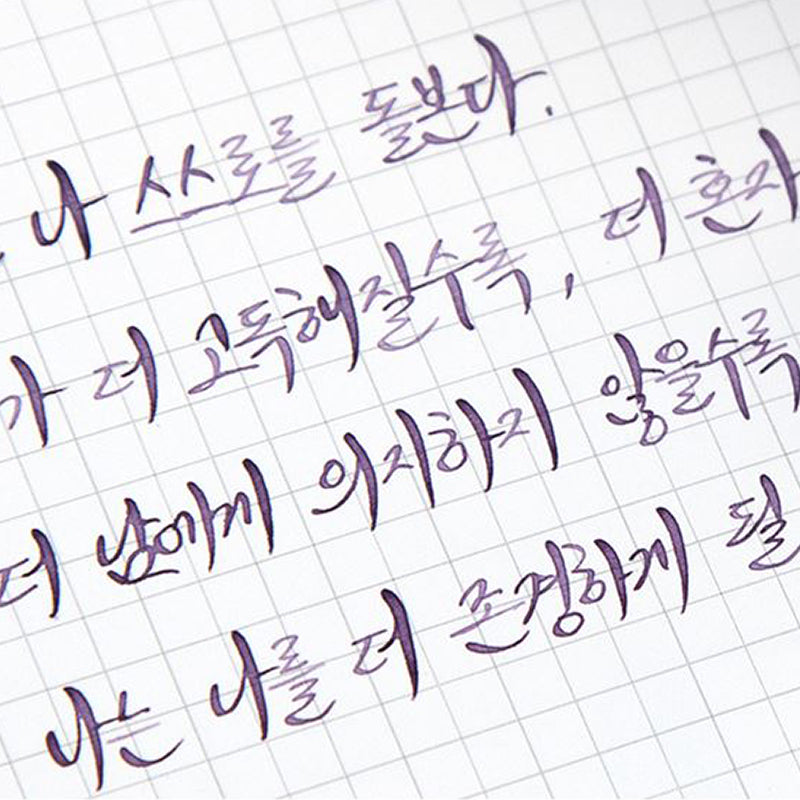 나 스스로를 돌본다.
가 더 고독해질수록, 더 혼자
더 남에게 의지하지 않을수록
나는 나를 더 존경하게 될